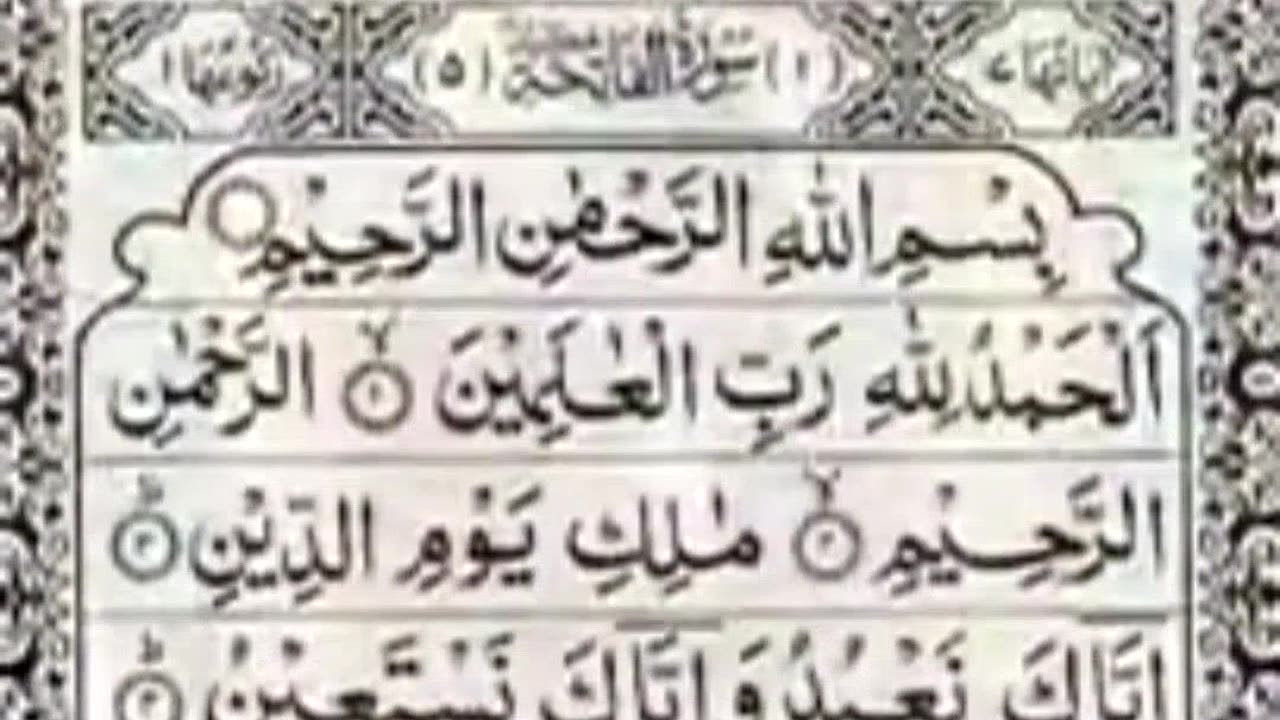 اٰیاتھا ٧ (١) سُوْرَةُ الْفَاتِحَةِ (٥) رکوعھا ١
بِسْمِ اللّٰهِ الرَّحْمٰنِ الرَّحِیْمِ
اَلْحَمْدُ لِلّٰهِ رَبِّ الْعٰلَمِیْنَ ۙ﴿١﴾ الرَّحْمٰنِ
الرَّحِیْمِ ۙ﴿٢﴾ مٰلِكِ یَوْمِ الدِّیْنِ ؕ﴿٣﴾
اِیَّاكَ نَعْبُدُ وَ اِیَّاكَ نَسْتَعِیْنُ ؕ﴿٤﴾